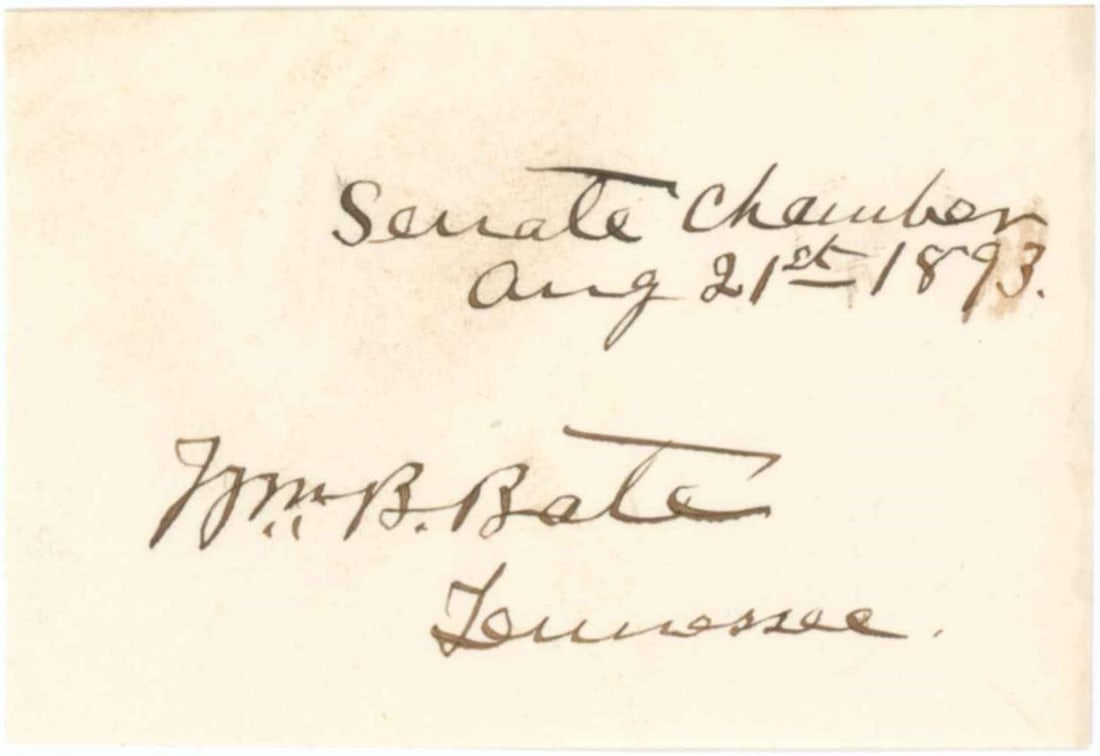 Senate Chamber
Aug 21st 1893.
Wm. B. Bate
Tennessee.